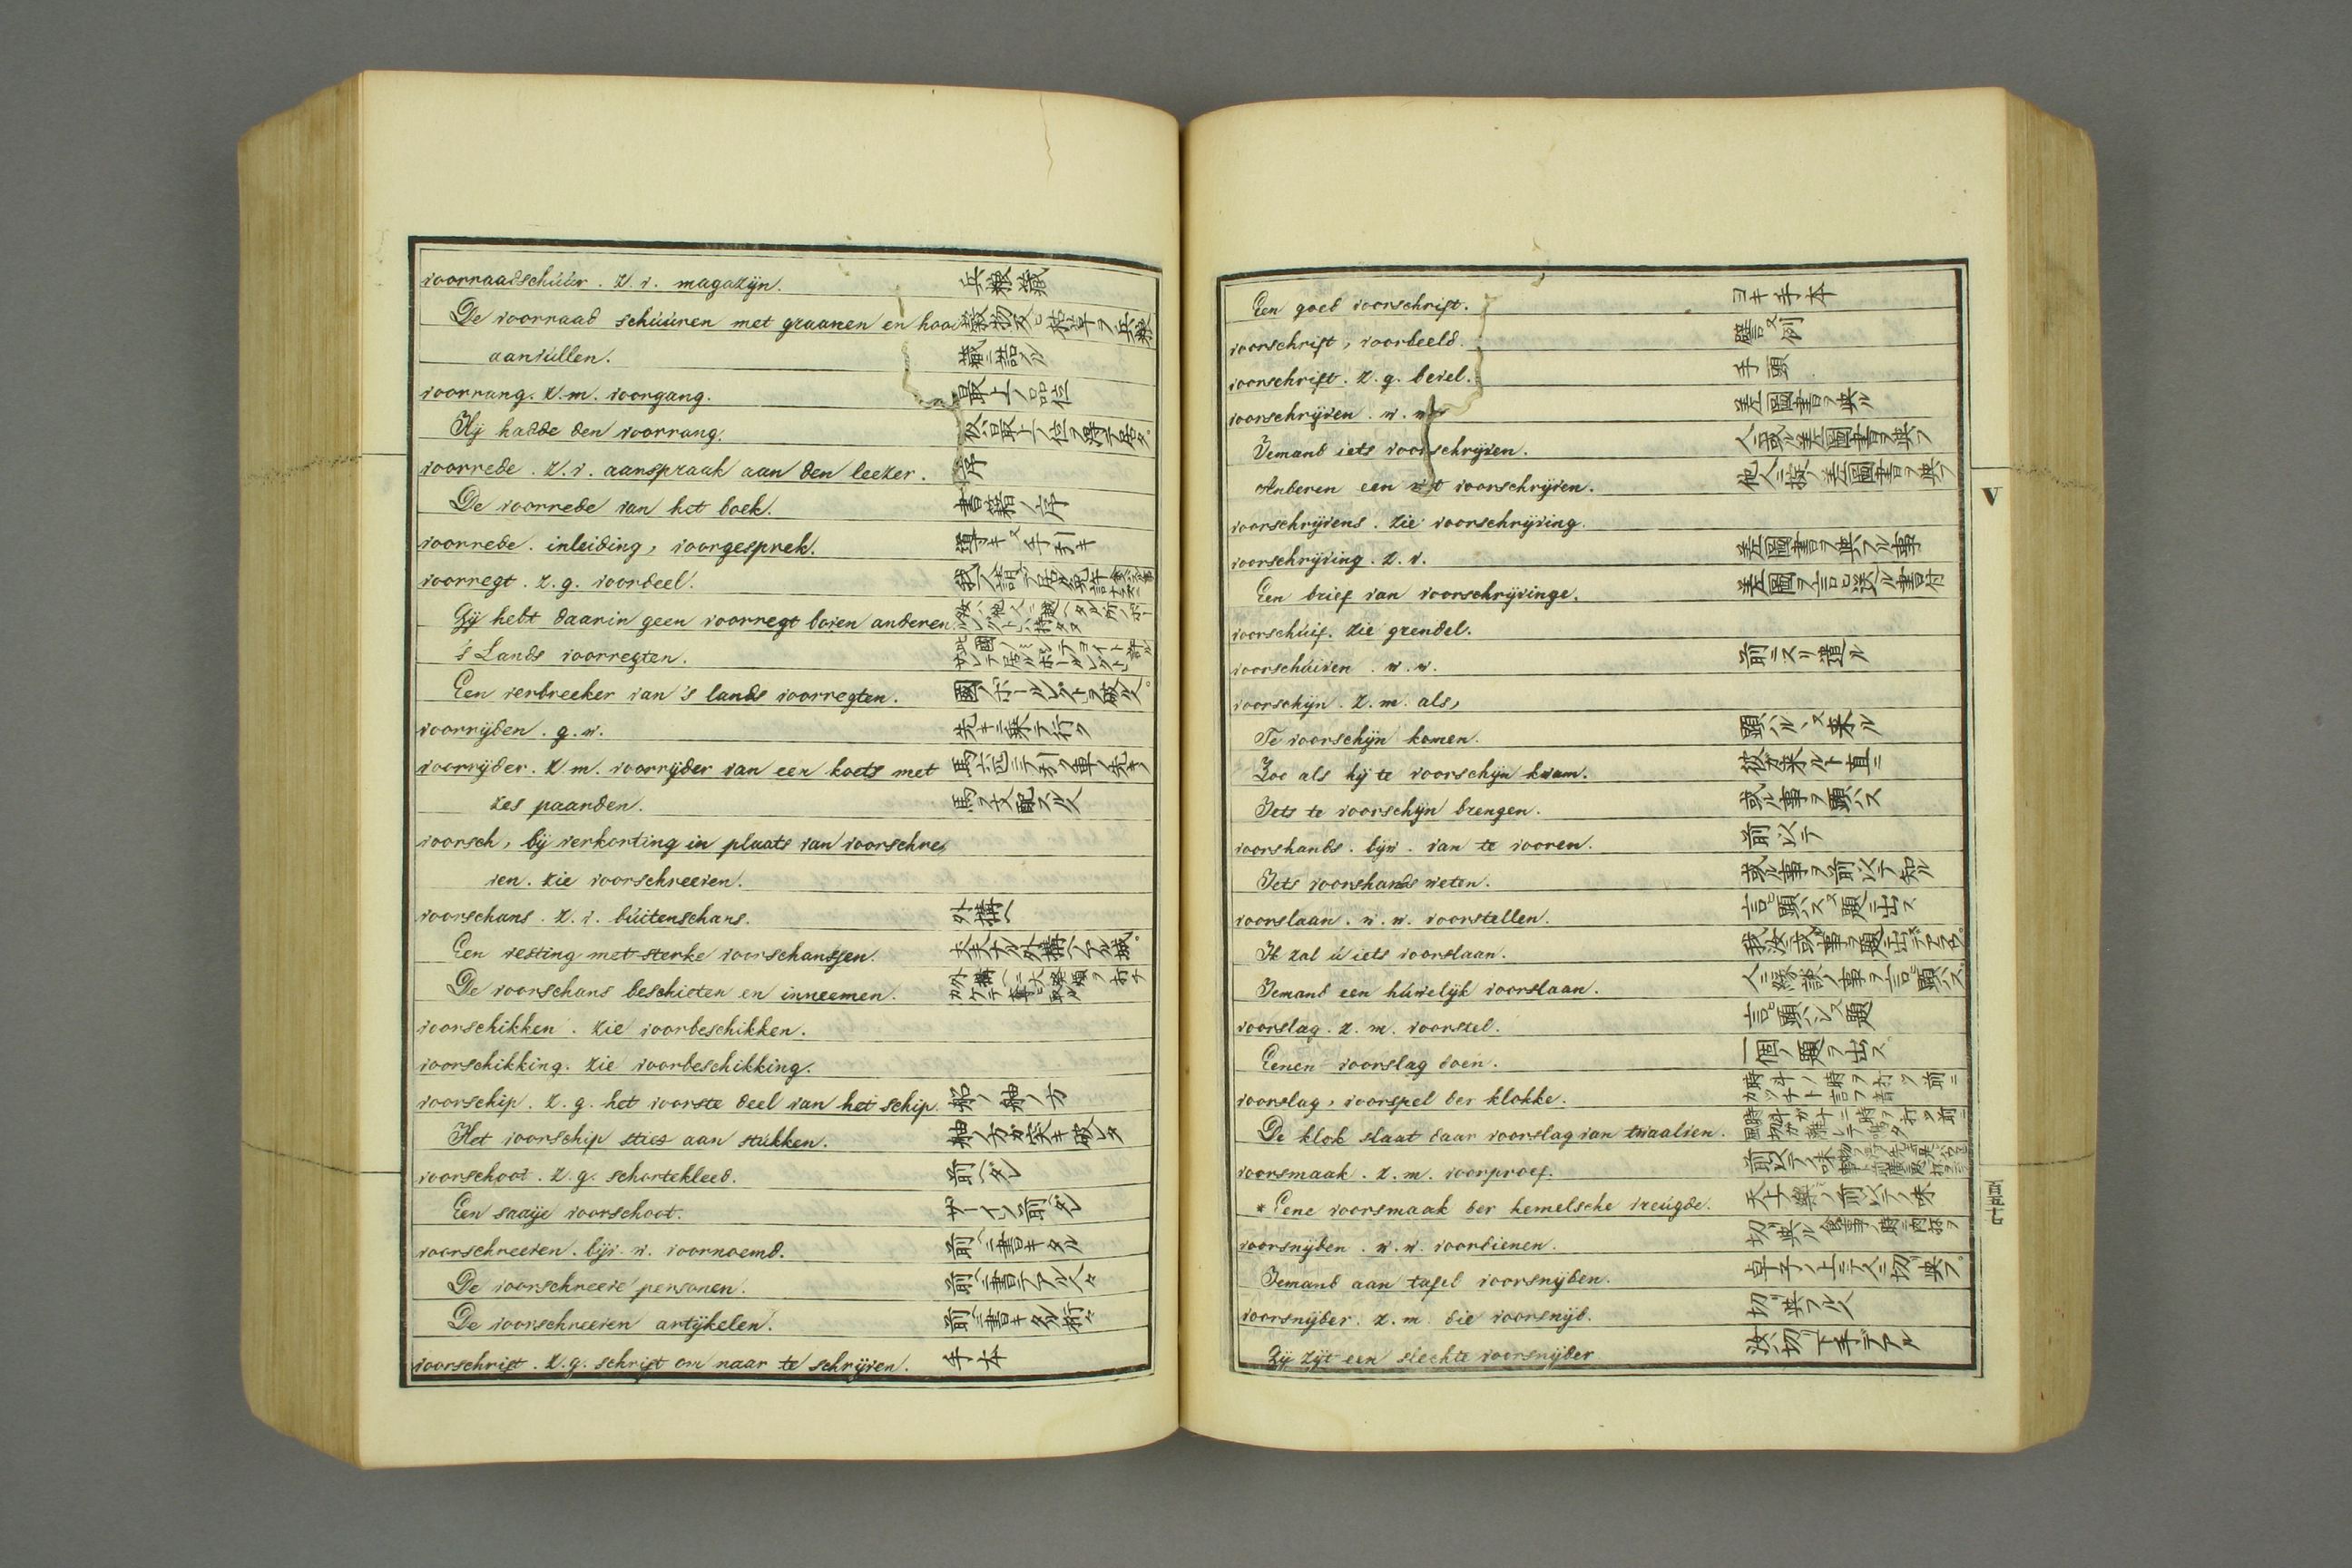 voorraadschúúr. z. v. magazijn. 兵粮藏
De voorraad schúúren met graanen en hooi 穀物及ヒ枯草ヲ兵粮
aanvúllen. 藏ニ詰ル
voorrang. z. m. voorgang. 最上ノ品位
Hij hadde den voorrang. 彼ハ最上ノ位ヲ得テ居タ。
voorrede. z. v. aanspraak aan den leezer. 序
De voorrede van het boek. 書籍ノ序
voorrede. inleiding, voorgesprek. 導キ又手引キ
voorregt. z. g. voordeel.
Gij hebt daarin geen voorregt boven anderen.
's Lands voorregten.
Een verbreeker van 's lands voorregten.
voorrijden. g. w. 先キニ乘テ行ク
voorrijder. z. m. voorrijder van een koets met 馬六疋ニテ引ク車ノ先キノ
zes paarden. 馬ヲ支配スル人
voorsch, bij verkorting in plaats van voorschree
ven. zie voorschreeven.
voorschans. z. v. búitenschans. 外構ヘ
Een vesting met sterke voorschanssen. 大丈夫ナル外構ヘアル城。
De voorschans beschieten en inneemen.
voorschikken. zie voorbeschikken.
voorschikking. zie voorbeschikking.
voorschip. z. g. het voorste deel van het schip. 船ノ舳ノ方
Het voorschip sties aan stúkken. 舳ノ方ガ突キ破レタ
voorschoot. z. g. schortekleed. 前ヘダレ
Een saaije voorschoot. サーイノ前ダレ
voorschreeven. bijv. w. voornoemd. 前ヘニ書キタル
De voorschreeve personen. 前ヘニ書テアル人々
De voorschreeven artijkelen. 前ヘニ書キタル
voorschrift. z. g. schrift om naar te schrijven. 手本
Een goed voorschrift. ヨキ手本
voorschrift, voorbeeld. 譬言又例
voorschrift. z. g. bevel.
voorschrijven. w. w. 差圖書ヲ與ル
Iemand iets voorschrijven. 人ニ或ル差圖書ヲ與フ
Anderen een wet voorschrijven.
voorschrijvens. zie voorschrijving.
voorschrijving. z. v. 差圖書ヲ與フル事
Een brief van voorschrijvinge. 差圖ヲ言ヒ送ル書付
voorschúif. zie grendel.
voorschúiven. w. w. 前ニスリ遣ル
voorschijn. z. m. als,
Te voorschijn komen. 顯ハル又來ル
Zoo als hij te voorschijn kwam. 彼ガ來ルト直ニ
Iets te voorschijn brengen. 或ル事ヲ顯ハス
voorshands. bijw. van te vooren. 前以テ
Iets voorshands weten. 或ル事ヲ前以テ知ル
voorslaan. w. w. voorstellen. 言ヒ顯ハス又題ニ出ス
Ik zal ú iets voorslaan.
Iemand een húwelijk voorslaan. 人ニ縁談ノ事ヲ言ヒ顯ハス。
voorslag. z. m. voorstel. 言ヒ顯ハシ又題
Eenen voorslag doen. 一個ノ題ヲ出ス。
voorslag, voorspel der klokke. 時斗ノ時ヲ打ツ前ニカツチト言フ音
De klok slaat daar voorslag van twaalven.
voorsmaak. z. m. voorproef. 前以テノ味
* Eene voorsmaak der hemelsche vreúgde. 天上樂ノ前以テノ味
voorsnijden. w. w. voordienen.
Iemand aan tafel voorsnijden. 卓子ノ上ニテ人ニ切リ與フ。
voorsnijder. z. m. die voorsnijd. 切リ與フル人
Gij zijt een slechte voorsnijder 汝ハ切リ下手デアル
V